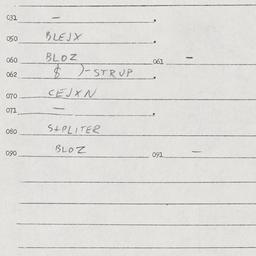 031 —
050 BLEJX
060 BLOZ 061 —
062 $ )-STRUP
070 CEJXN
071 —
080 S+PLITER
090 BLOZ 091 —